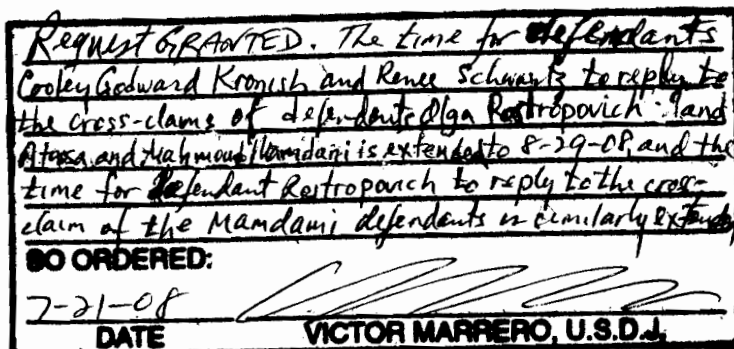 Request GRANTED. The time for defendants
Cooley Godward Kronish and Renee Schwartz to reply to
the cross-claims of defendants Olga Rostropovich and
Atossa and Mahmoud Mamdani is extended to 8-29-08, and the
time for defendant Rostropovich to reply to the cross-
claim of the Mamdani defendants is similarly extended
SO ORDERED:
7-21-08
DATE VICTOR MARRERO, U.S.D.J.